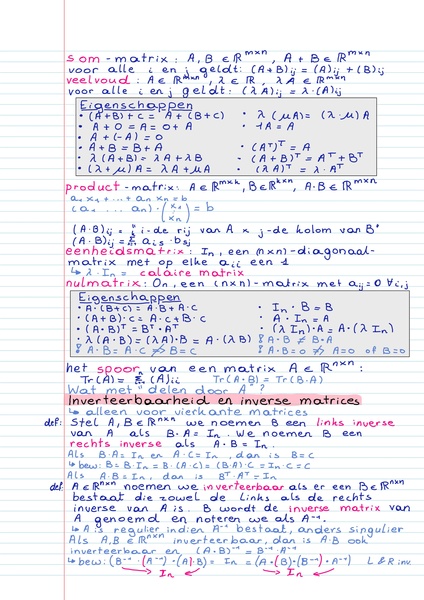 som-matrix: A, B ∈ ℝᵐˣⁿ, A + B ∈ ℝᵐˣⁿ
voor alle i en j geldt: (A+B)ij = (A)ij + (B)ij
veelvoud: A ∈ ℝᵐˣⁿ, λ ∈ ℝ, λA ∈ ℝᵐˣⁿ
voor alle i en j geldt: (λA)ij = λ·(A)ij
Eigenschappen
• (A+B)+C = A+(B+C) • λ(μA) = (λ·μ)A
• A+0 = A = 0+A • -1A = A
• A+(-A) = 0
• A+B = B+A • (Aᵀ)ᵀ = A
• λ(A+B) = λA+λB • (A+B)ᵀ = Aᵀ+Bᵀ
• (λ+μ)A = λA+μA • (λA)ᵀ = λ·Aᵀ
product-matrix: A ∈ ℝᵐˣᵏ, B ∈ ℝᵏˣⁿ, A·B ∈ ℝᵐˣⁿ
a₁x₁ + ... + anxn = b
(a₁ ... an)·(x₁ ⋮ xn) = b
(A·B)ij = "i-de rij van A × j-de kolom van B"
(A·B)ij = Σ ais·bsj
eenheidsmatrix: In, een (n×n)-diagonaal-
matrix met op elke aii een 1
↳ λ·In = calaire matrix
nulmatrix: On, een (n×n)-matrix met aij=0 ∀i,j
Eigenschappen
• A·(B+C) = A·B+A·C • In·B = B
• (A+B)·C = A·C+B·C • A·In = A
• (A·B)ᵀ = Bᵀ·Aᵀ • (λIn)·A = A·(λIn)
• λ(A·B) = (λA)·B = A·(λB) ! A·B ≠ B·A
! A·B = A·C ⇏ B=C ! A·B=0 ⇏ A=0 of B=0
het spoor van een matrix A ∈ ℝⁿˣⁿ:
Tr(A) = Σ (A)ii Tr(A·B) = Tr(B·A)
Wat met "delen door A"?
Inverteerbaarheid en inverse matrices
↳ alleen voor vierkante matrices
def: Stel A,B ∈ ℝⁿˣⁿ we noemen B een links inverse
van A als B·A = In. We noemen B een
rechts inverse als A·B = In.
Als B·A = In en A·C = In, dan is B=C
↳ bew: B = B·In = B·(A·C) = (B·A)·C = In·C = C
Als A·B = In, dan is Bᵀ·Aᵀ = In
def: A ∈ ℝⁿˣⁿ noemen we inverteerbaar als er een B ∈ ℝⁿˣⁿ
bestaat die zowel de links als de rechts
inverse van A is. B wordt de inverse matrix van
A genoemd en noteren we als A⁻¹.
↳ A is regulier indien A⁻¹ bestaat, anders singulier
Als A,B ∈ ℝⁿˣⁿ inverteerbaar, dan is A·B ook
inverteerbaar en (A·B)⁻¹ = B⁻¹·A⁻¹
↳ bew: (B⁻¹·(A⁻¹)·(A)·B) = In = (A·(B)·(B⁻¹)·A⁻¹) L & R inv.
In In